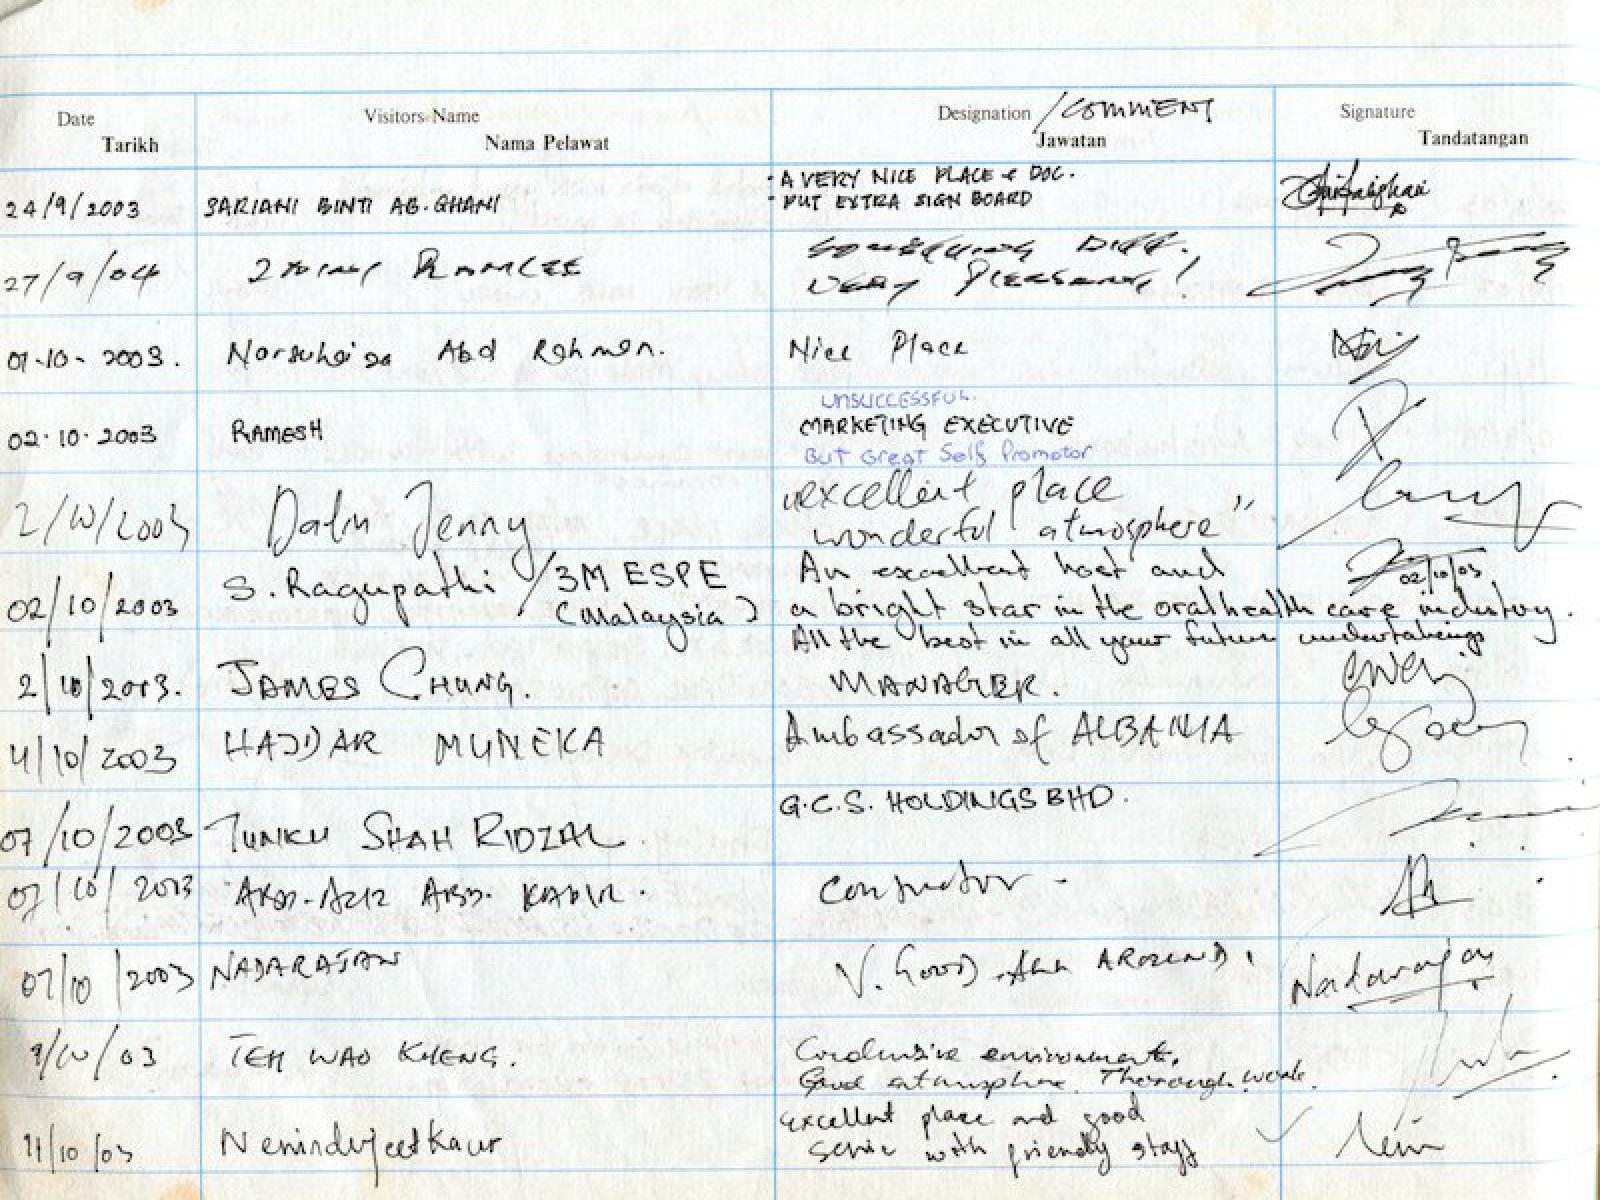 Date Tarikh
Visitors Name Nama Pelawat
Designation /COMMENT Jawatan
Signature Tandatangan
24/9/2003 SARIANI BINTI AB. GHANI
- A VERY NICE PLACE & DOC.
- PUT EXTRA SIGN BOARD
27/9/04 RAMLEE
SOMETHING DIFF.
VERY PLEASANT!
01-10-2003. Norsuhaiza Abd Rahman. Nice Place
UNSUCCESSFUL
02.10.2003 RAMESH MARKETING EXECUTIVE
But Great Self Promotor
2/10/2003 Datin Jenny
"excellent place
wonderful atmosphere"
02/10/2003 S. Ragupathi / 3M ESPE
(Malaysia)
An excellent host and
02/10/03
a bright star in the oral health care industry.
All the best in all your future undertakings
2/10/2003. JAMES CHUNG. MANAGER.
4/10/2003 HAJDAR MUNEKA Ambassador of ALBANIA
07/10/2003 TUNKU SHAH RIDZAL G.C.S. HOLDINGS BHD.
07/10/2003 ABD. AZIZ ABD. KADIR. Contractor -
07/10/2003 NADARAJAN V. GOOD ALL AROUND. Nadarajan
9/10/03 TEH WAO KHENG.
Conducive environment.
Good atmosphere. Thorough work.
11/10/03 Nemindurjeet Kaur
Excellent place and good
service with friendly staff